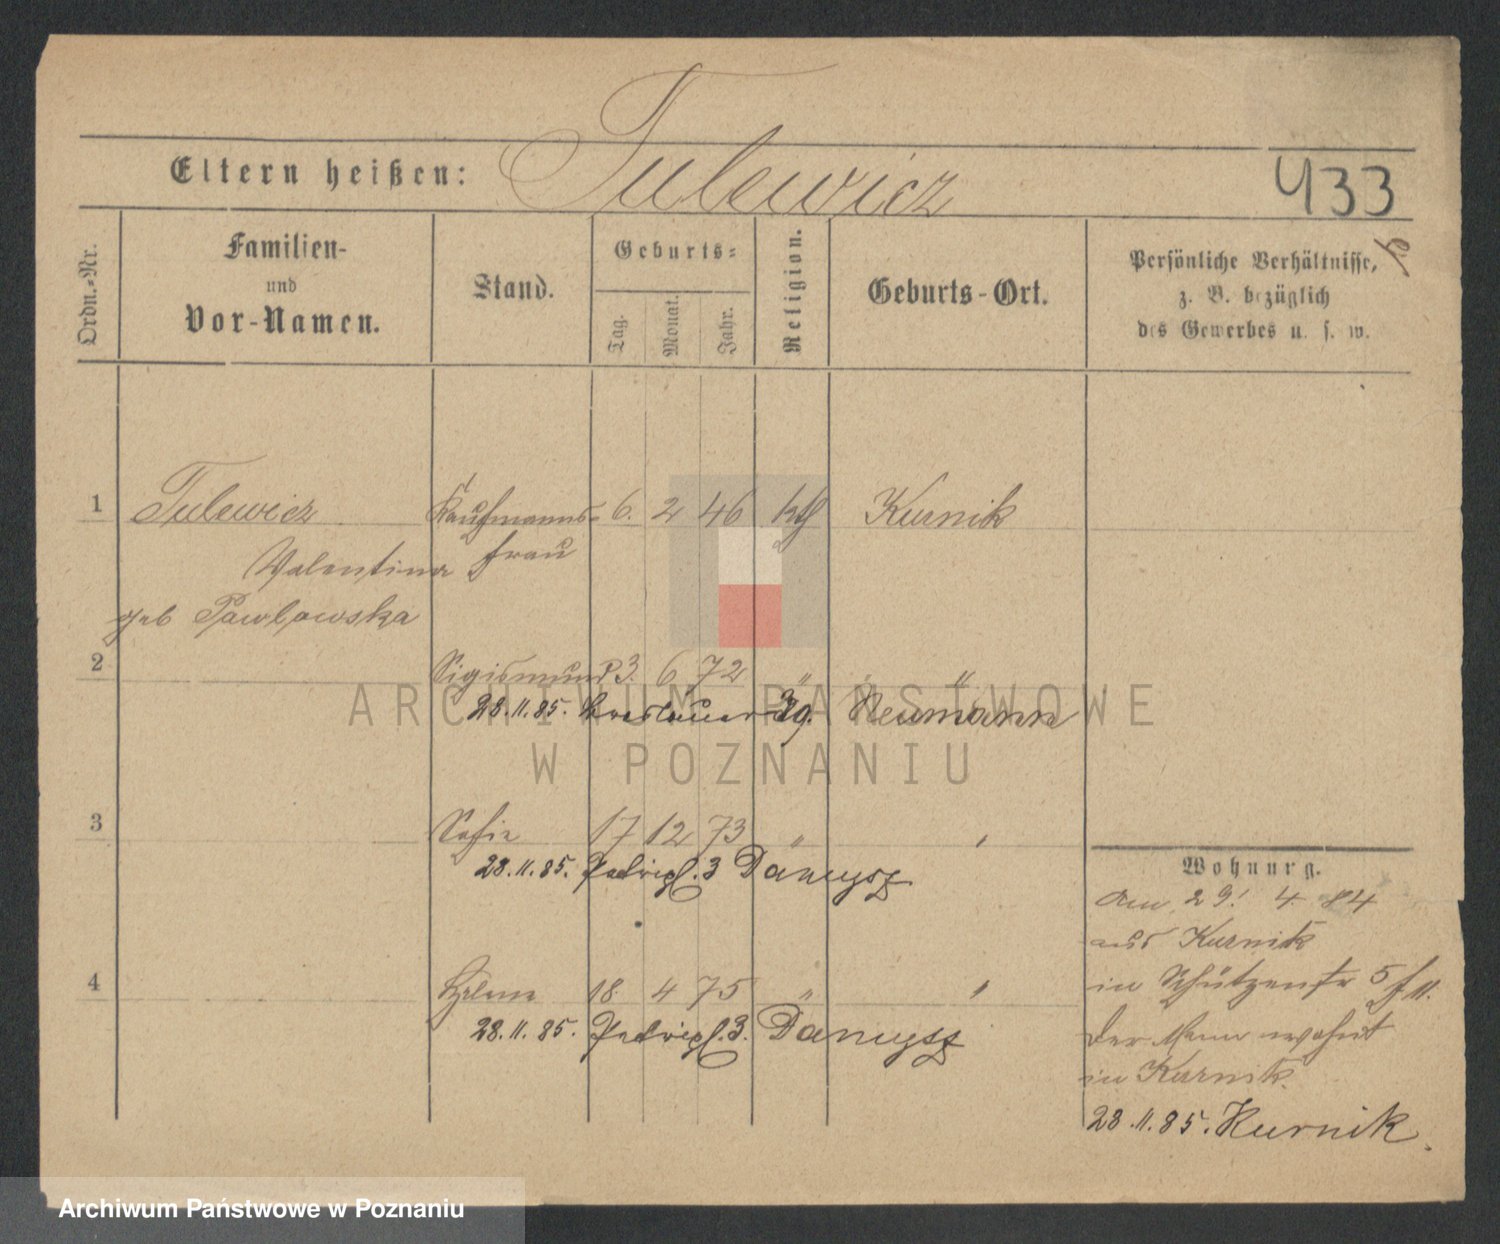 Tulewicz
Eltern heißen:
433
Ordn.-Nr.
Familien-
und
Vor-Namen.
Stand.
Geburts-
Tag.
Monat.
Jahr.
Religion.
Geburts-Ort.
Persönliche Verhältnisse,
z. B. bezüglich
des Gewerbes u. s. w.
1 Tulewicz Kaufmanns- 6. 2 46 kth Kurnik
Valentina frau
geb Pawlowska
2 Sigismund 3. 6 72 " "
28.11.85. Breslauer 29. Neumann
ARCHIWUM PAŃSTWOWE
W POZNANIU
3 Sofie 17 12 73 "
28.11.85. 3 Damysz
Wohnung.
Am 29. 4. 84
aus Kurnik
4 Helene 18 4 75 "
in Schützenstr 5
28.11.85. 3. Damysz
Der Mann wohnt
in Kurnik.
28.11.85. Kurnik.
Archiwum Państwowe w Poznaniu